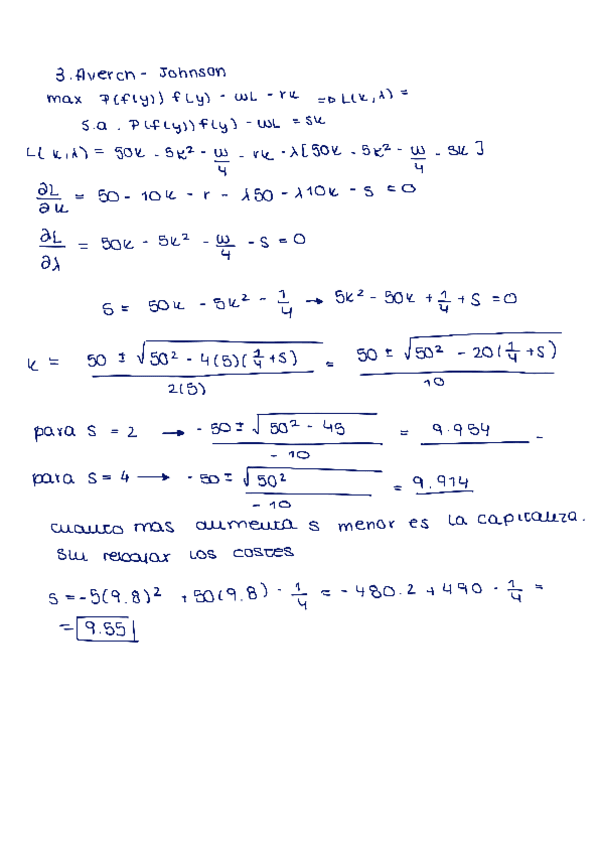 3. Averch - Johnson
max P(f(y)) f(y) - wL - rk => L(k,λ) =
s.a. P(f(y)) f(y) - wL = sk
L(k,λ) = 50k - 5k² - w/4 - rk - λ[50k - 5k² - w/4 - sk]
∂L/∂k = 50 - 10k - r - λ50 - λ10k - s = 0
∂L/∂λ = 50k - 5k² - w/4 - s = 0
s = 50k - 5k² - 1/4 → 5k² - 50k + 1/4 + s = 0
k = 50 ± √50² - 4(5)(1/4 + s) / 2(5) = 50 ± √50² - 20(1/4 + s) / 10
para s = 2 → - 50 ± √50² - 45 / - 10 = 9.954
para s = 4 → - 50 ± √50² / - 10 = 9.914
cuanto mas aumenta s menor es la capitaliza.
sin relajar los costes
s = -5(9.8)² + 50(9.8) - 1/4 = - 480.2 + 490 - 1/4 =
= 9.55